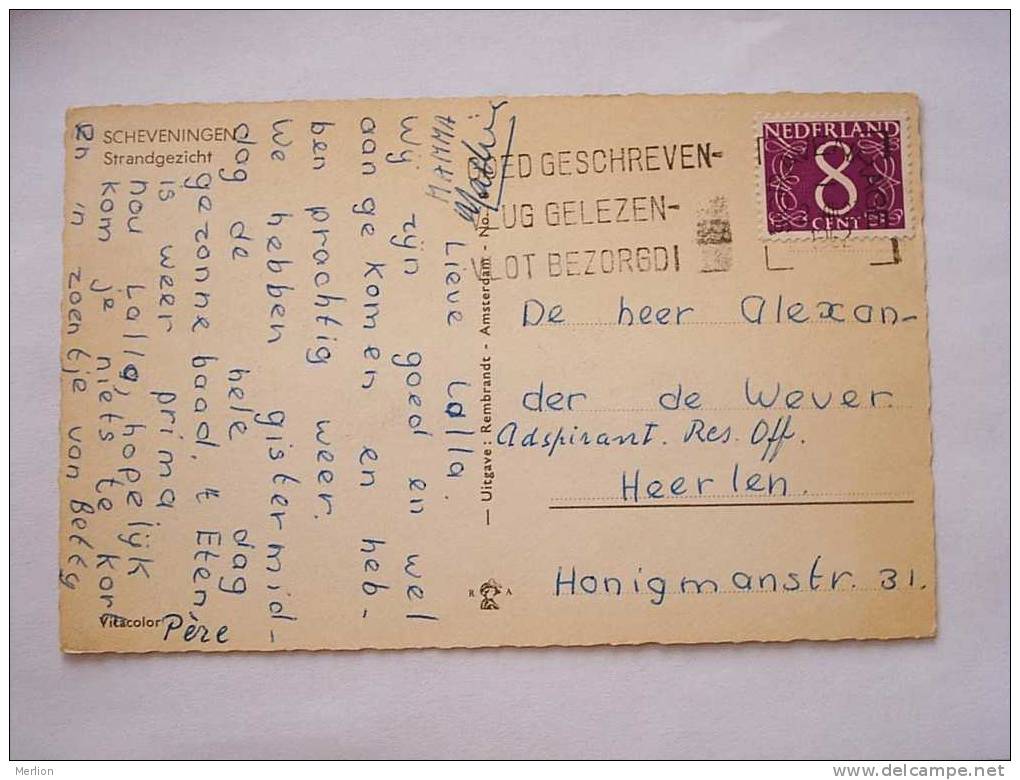 SCHEVENINGEN
Strandgezicht
Lieve Lalla.
wij zijn goed en wel
aan gekomen en heb-
ben prachtig weer.
We hebben gistermid-
dag de hele dag
gezonne baad. t Eten
is weer prima
nou Lalla, hopelijk
kom je niets te kort
en in zoentje van Betty
MAMMA
Père
Vitacolor
— Uitgave: Rembrandt - Amsterdam - No.
R A
GOED GESCHREVEN-
VLUG GELEZEN-
VLOT BEZORGD!
NEDERLAND
8
CENT
De heer Alexan-
der de Wever.
Adspirant. Res. Off.
Heerlen.
Honigmanstr. 31.
Merlion
delcampe.net